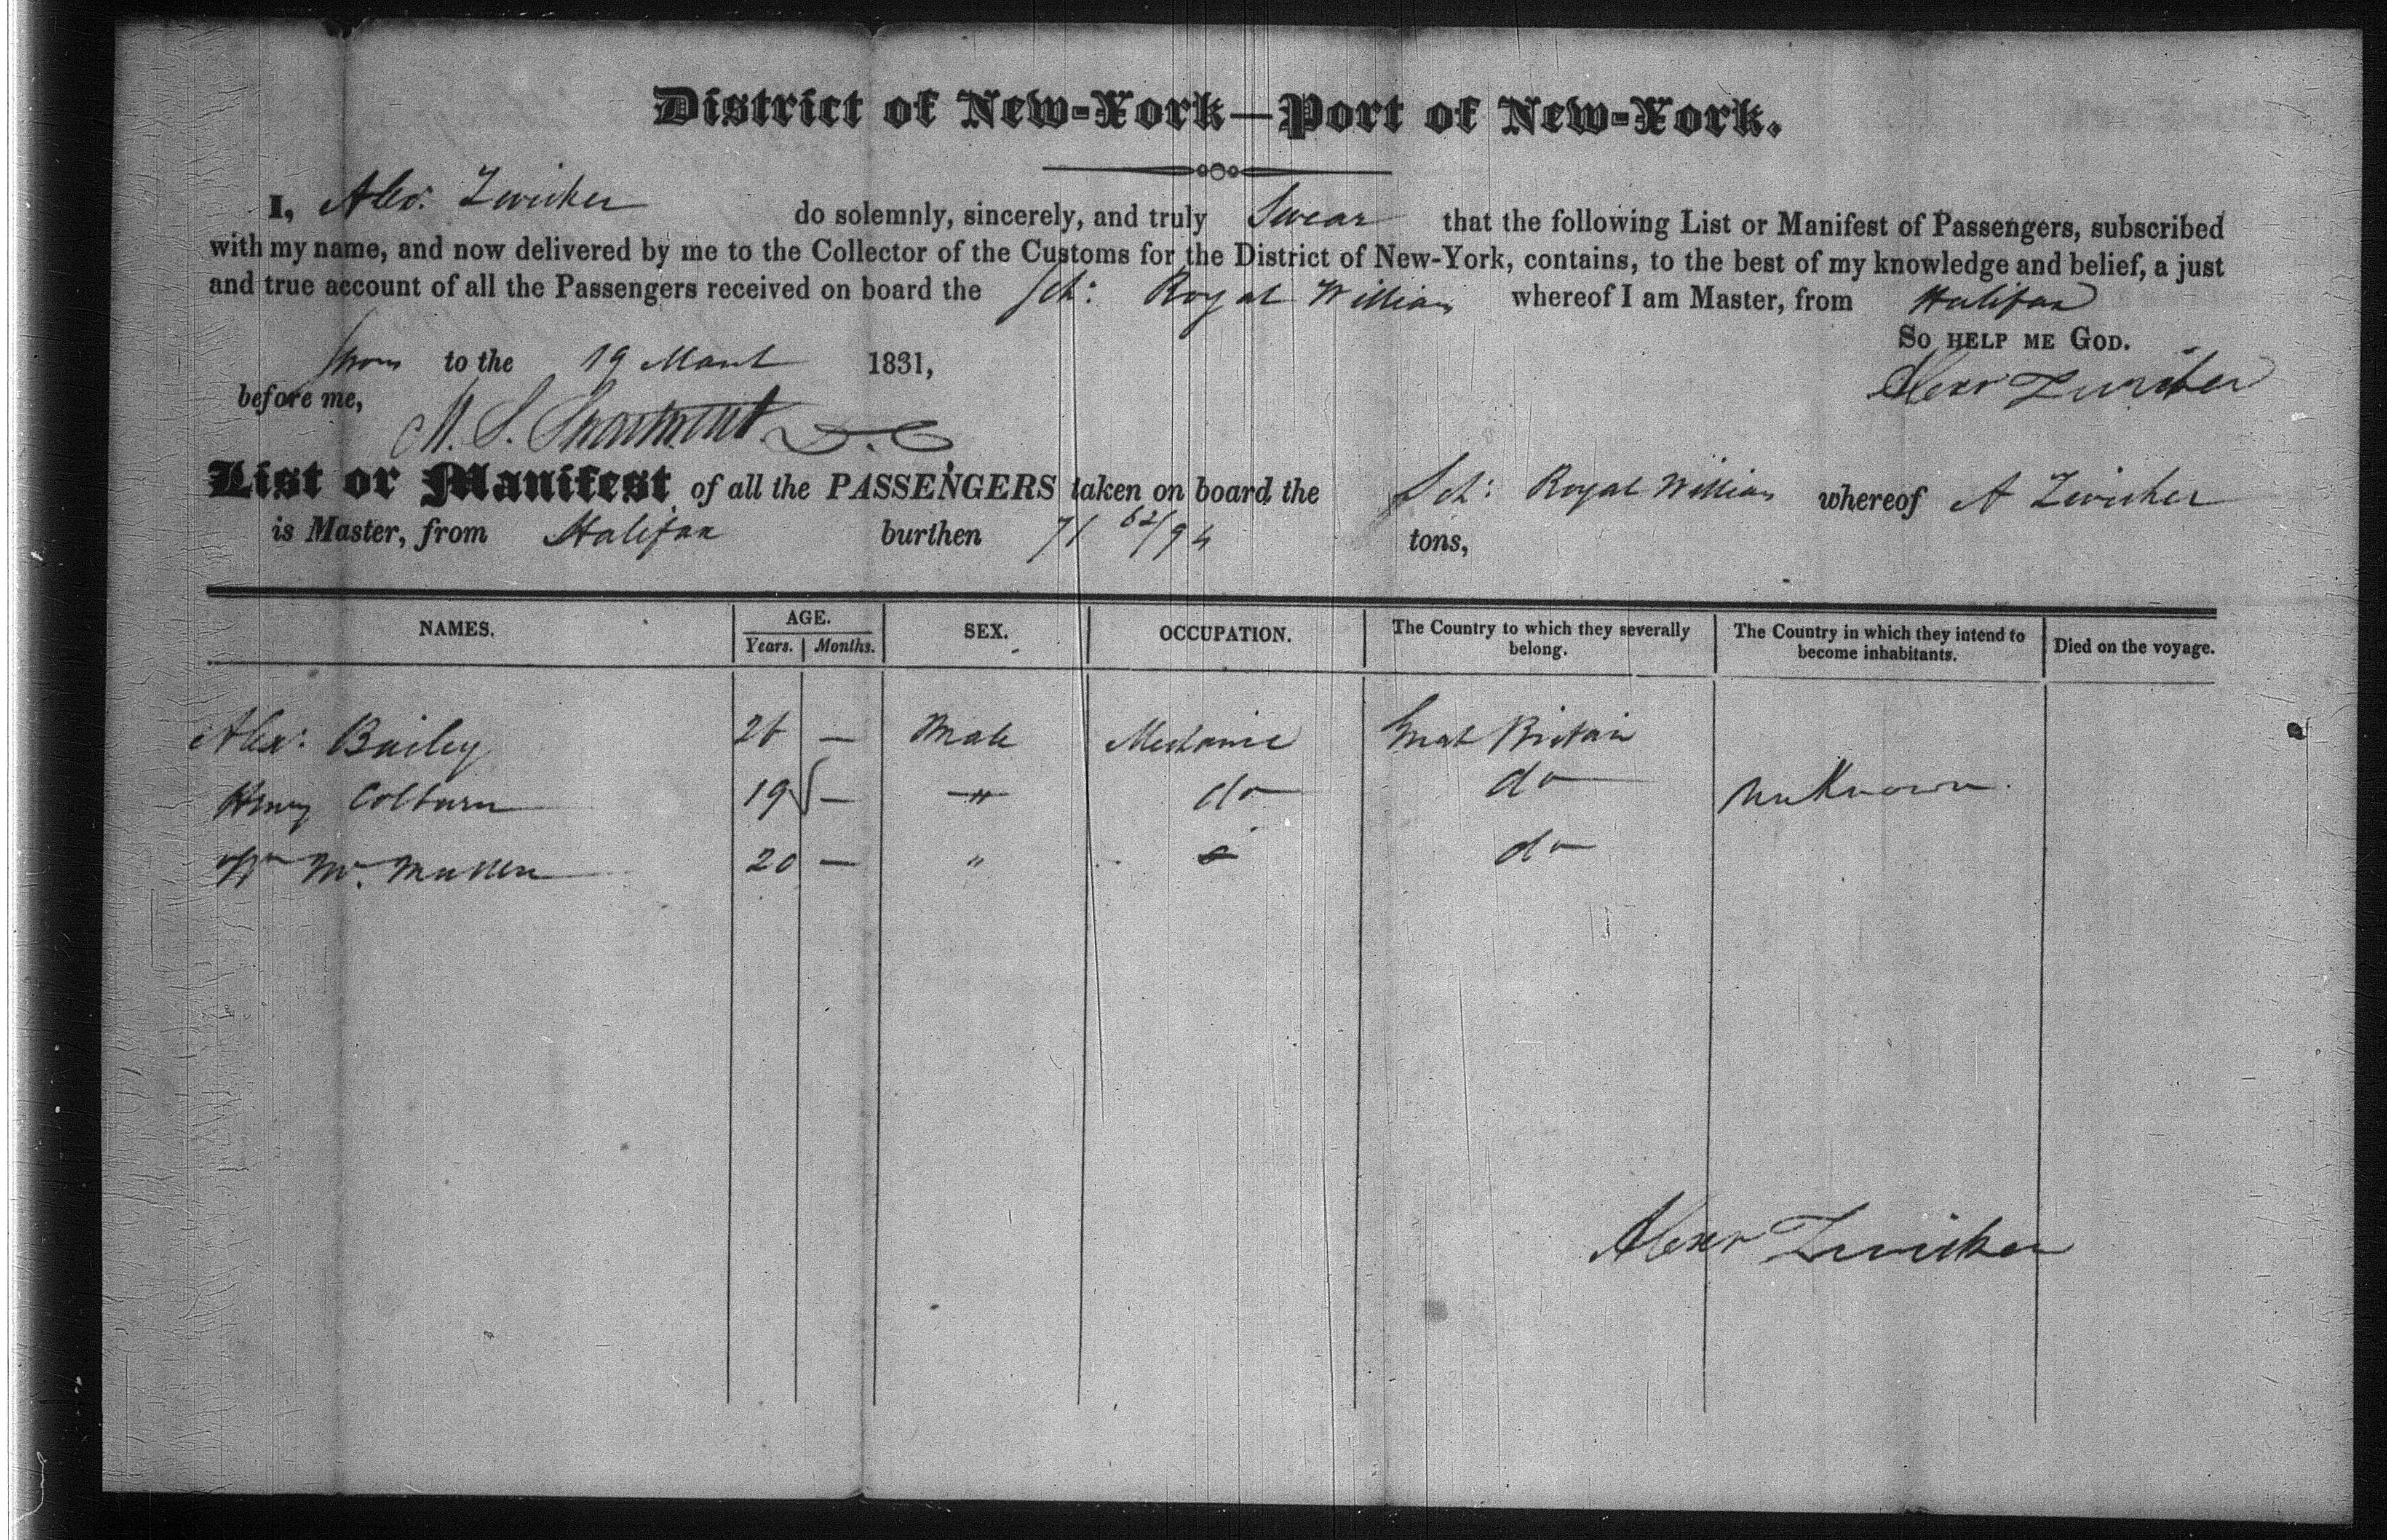 District of New-York—Port of New-York.
I, Alexr. Zwicker do solemnly, sincerely, and truly Swear that the following List or Manifest of Passengers, subscribed
with my name, and now delivered by me to the Collector of the Customs for the District of New-York, contains, to the best of my knowledge and belief, a just
and true account of all the Passengers received on board the Sch: Royal William whereof I am Master, from Halifax
So help me God.
Sworn to the 19 March 1831,
Alexr Zwicker
before me,
M. S. D.C
List or Manifest of all the PASSENGERS taken on board the Sch: Royal William whereof A Zwicker
is Master, from Halifax burthen 71 62/94 tons,
NAMES. AGE. Years. Months. SEX. OCCUPATION. The Country to which they severally belong. The Country in which they intend to become inhabitants. Died on the voyage.
Alexr. Bailey 26 — Male Mechanic Great Britain
Henry Colburn 19 — " do do unknown.
Wm Mc. Mullen 20 — " do
Alexr Zwicker